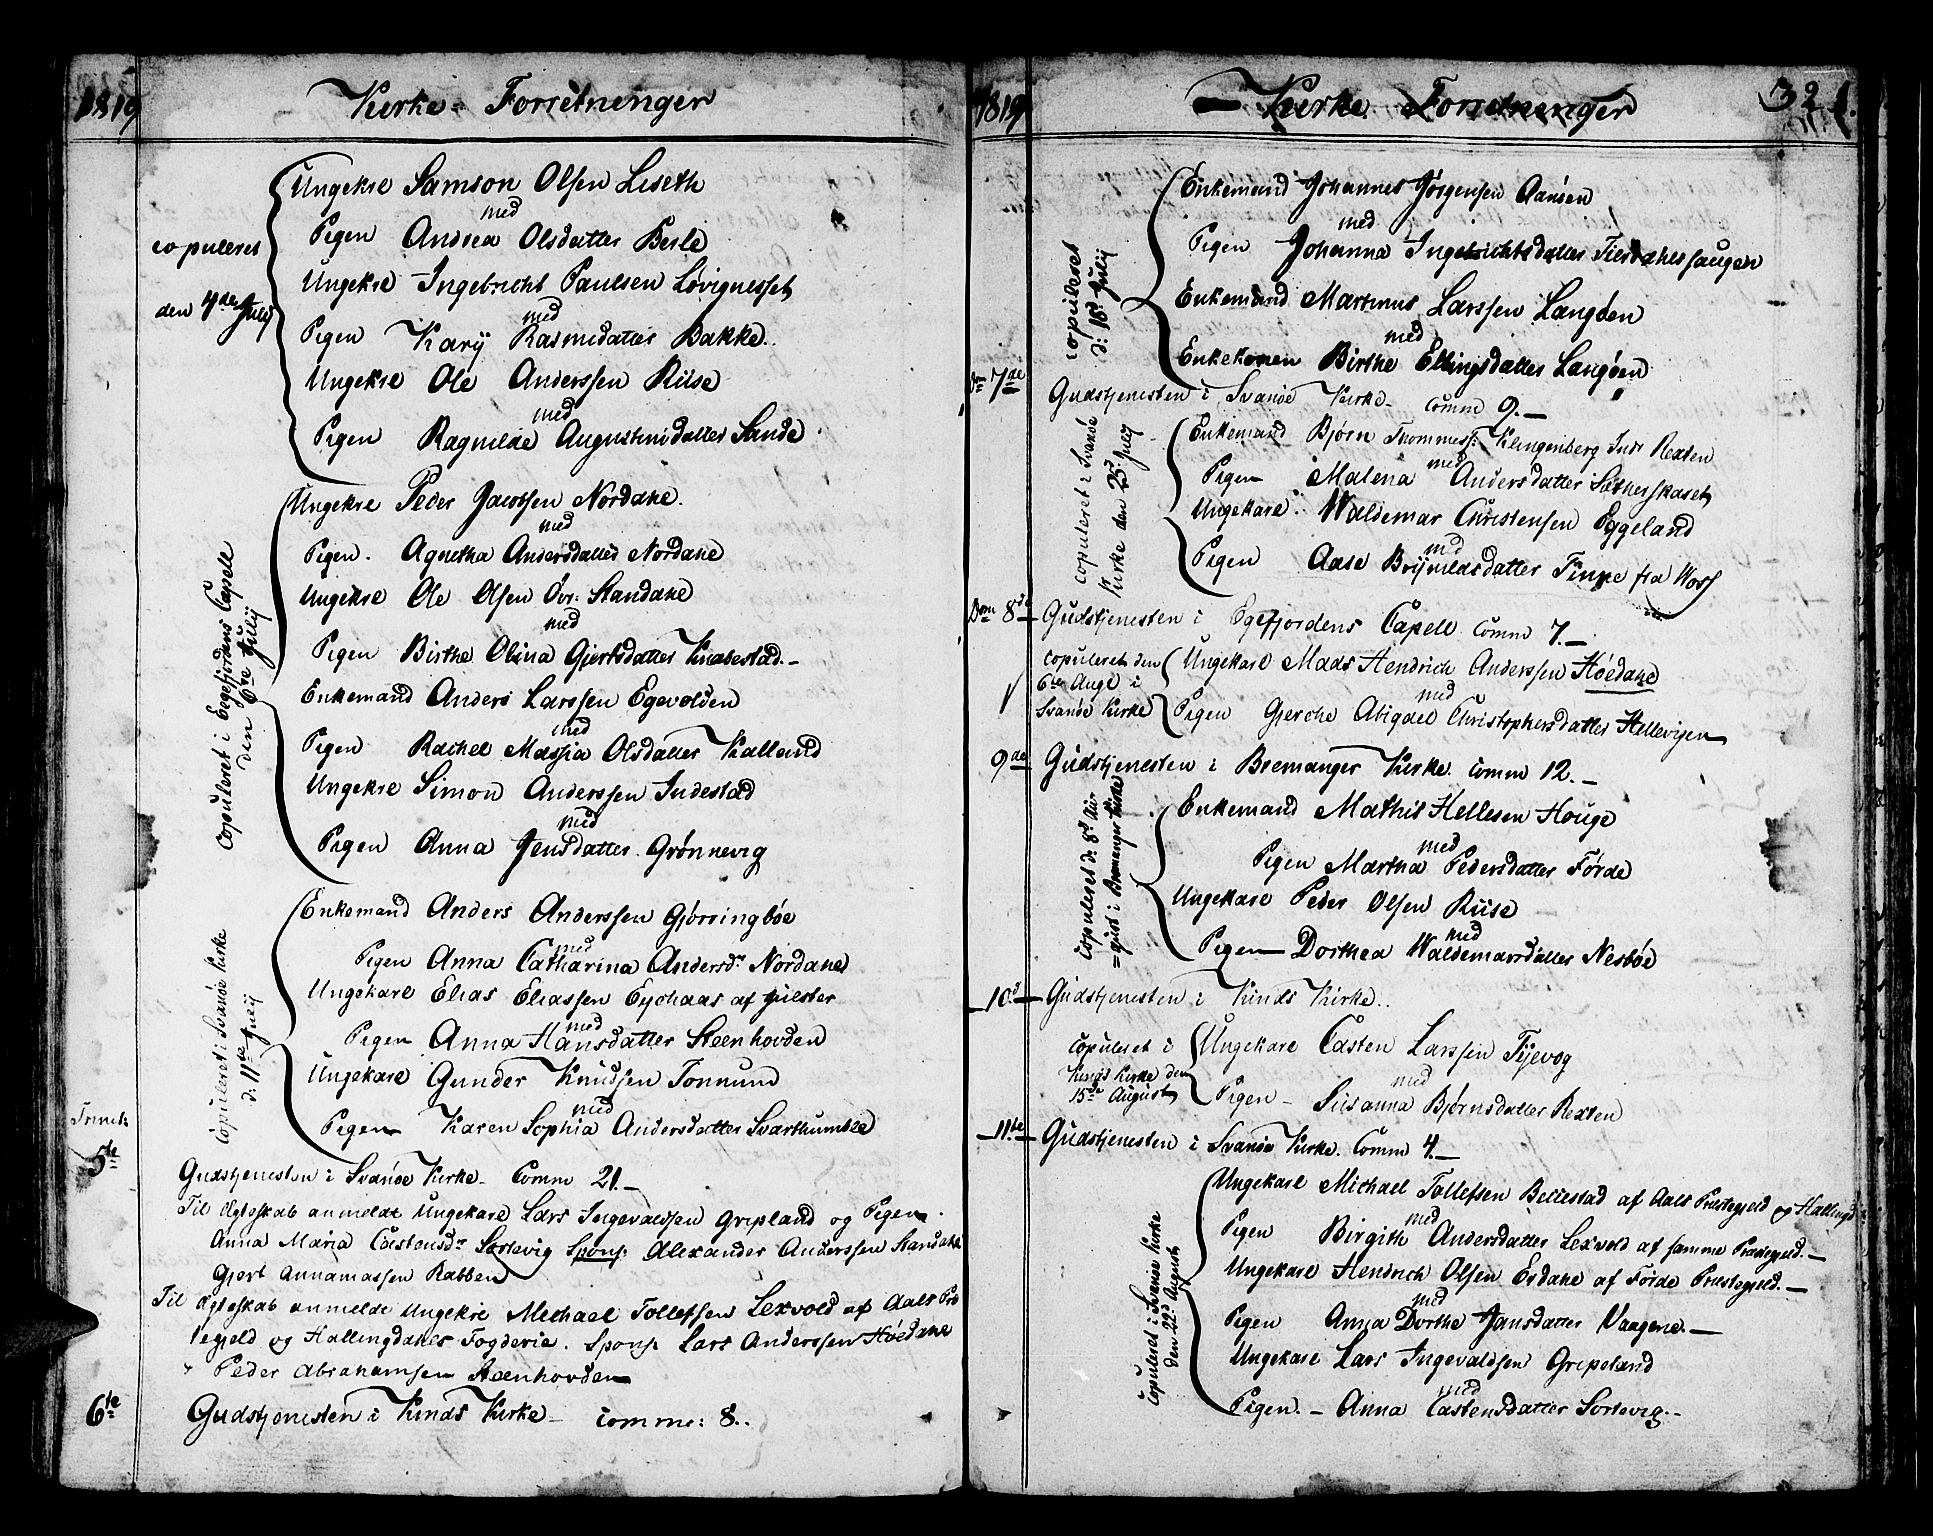 1819 Kirke - Forretninger
copuleret
den 4de July
Ungekre Samson Olsen Liseth
med
Pigen Andrea Olsdatter Berle
Ungekre Ingebricht Paulsen Løvignesset
med
Pigen Kary Rasmusdatter Bakke.
Ungekre Ole Anderssen Riise
med
Pigen Ragnilde Augustinidatter Sande
Copuleret i Egefjordens Capell
den 6te July
Ungekre Peder Jacobsen Nordahe.
med
Pigen. Agnetha Andersdatter Nordahe
Ungekre Ole Olsen Øvr: Standahe
med
Pigen Birthe Olina Gjertsdatter Knabestad.-
Enkemand Anders Larssen Egevolden
med
Pigen Rachel Massia Olsdatter Kalland
Ungekre Simon Anderssen Indestad
med
Pigen Anna Jensdatter Grønnevig
Copuleret i Svanøe Kirke
d: 11te July
Enkemand Anders Anderssen Gjørringbøe
med
Pigen Anna Catharina Andersdr Nordahe
Ungekarl Elias Eliassen Eychaas af Jülster
med
Pigen Anna Hansdatter Steenhovden
Ungekare Gunder Knudsen Tonnum
med
Pigen Karen Sophia Andersdatter Svarthumle
Trinit:
5te Gudstjenesten i Svanøe Kirke- Comm 21.-
Til Ægteskab anmeldt Ungekare Lars Ingevaldsen Gripland og Pigen
Anna Maria Castensdr Sørtevig Spons: Alexander Anderssen Standahe
Gjert Annamassen Rabben
Til Ægteskab anmelde Ungekre Michael Tollefsen Lexvold af Aals Præ
stegjeld og Hallingdahls Fogderie. Spons: Lars Anderssen Høedahe
Peder Abrahamsen Steenhovden
6te Gudstjenesten i Kinds Kirke- comm: 8..
1819 Kirke Forretninger 32
copuleret
d: 18d July
Enkemand Johannes Jørgensen Aanøen
med
Pigen Johanna Ingebrichtsdatter Tierdahlshaugen
Enkemand Martinus Larssen Langøen
med
Enkekonen Birthe Ellingsdatter Langøen
Dom 7de Gudstjenesten i Svanøe Kirke- comm 9.-
copuleret i Svanøe
Kirke den 25d July
Enkemand Bjørn Thommess: Klingenberg Indr Rexten
med
Pigen Malena Andersdatter Sætherskaset
Ungekare Waldemar Christensen Eggeland
med
Pigen Aase Brynildsdatter Finne fra Vors
Dom 8de Gudstjenesten i Egefjordens Capell comm 7.-
copuleret den
6te Augt i
Svanøe Kirke
Ungekarl Mads Hendrich Anderssen Høedahe
med
Pigen Gjerche Abigael Christophersdatter Hellevigen
9de Gudstjenesten i Bremanger Kirke. comm 12.-
copuleret d: 8d Au=
=gust i Bremanger Kirke
Enkemand Mathis Hellesen Houge
med
Pigen Martha Pedersdatter Førde
Ungekare Peder Olsen Riise
med
Pigen Dorthea Waldemarsdatter Nesbøe
10d Gudstjenesten i Kinds Kirke..
copuleret i
Kinds Kirke den
15de August
Ungekare Casten Larssen Tyevog
med
Pigen - Susanna Bjørnsdatter Rexten
11te Gudstjenesten i Svanøe Kirke. Comm 4.-
Copuleret i Svanøe Kirke
den 22d August
Ungekarl Michael Tollefsen Bellestad af Aals Præstegjeld og Hallingd
med
Pigen Birgith Andersdatter Lexvold af samme Præstegjeld.-
Ungekare Hendrich Olsen Erdahe af Førde Præstegjeld.-
med
Pigen Anna Dorthe Jansdatter Vaagene.-
Ungekare Lars Ingevaldsen Gripeland
med
Pigen.- Anna Castensdatter Sortevig.-